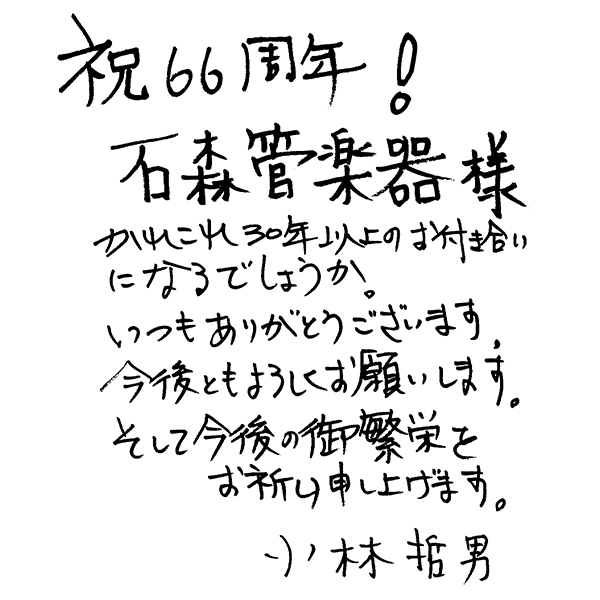 祝66周年！
石森管楽器様
かれこれ30年以上のお付き合い
になるでしょうか。
いつもありがとうございます。
今後ともよろしくお願いします。
そして今後の御繁栄を
お祈り申し上げます。
小林哲男